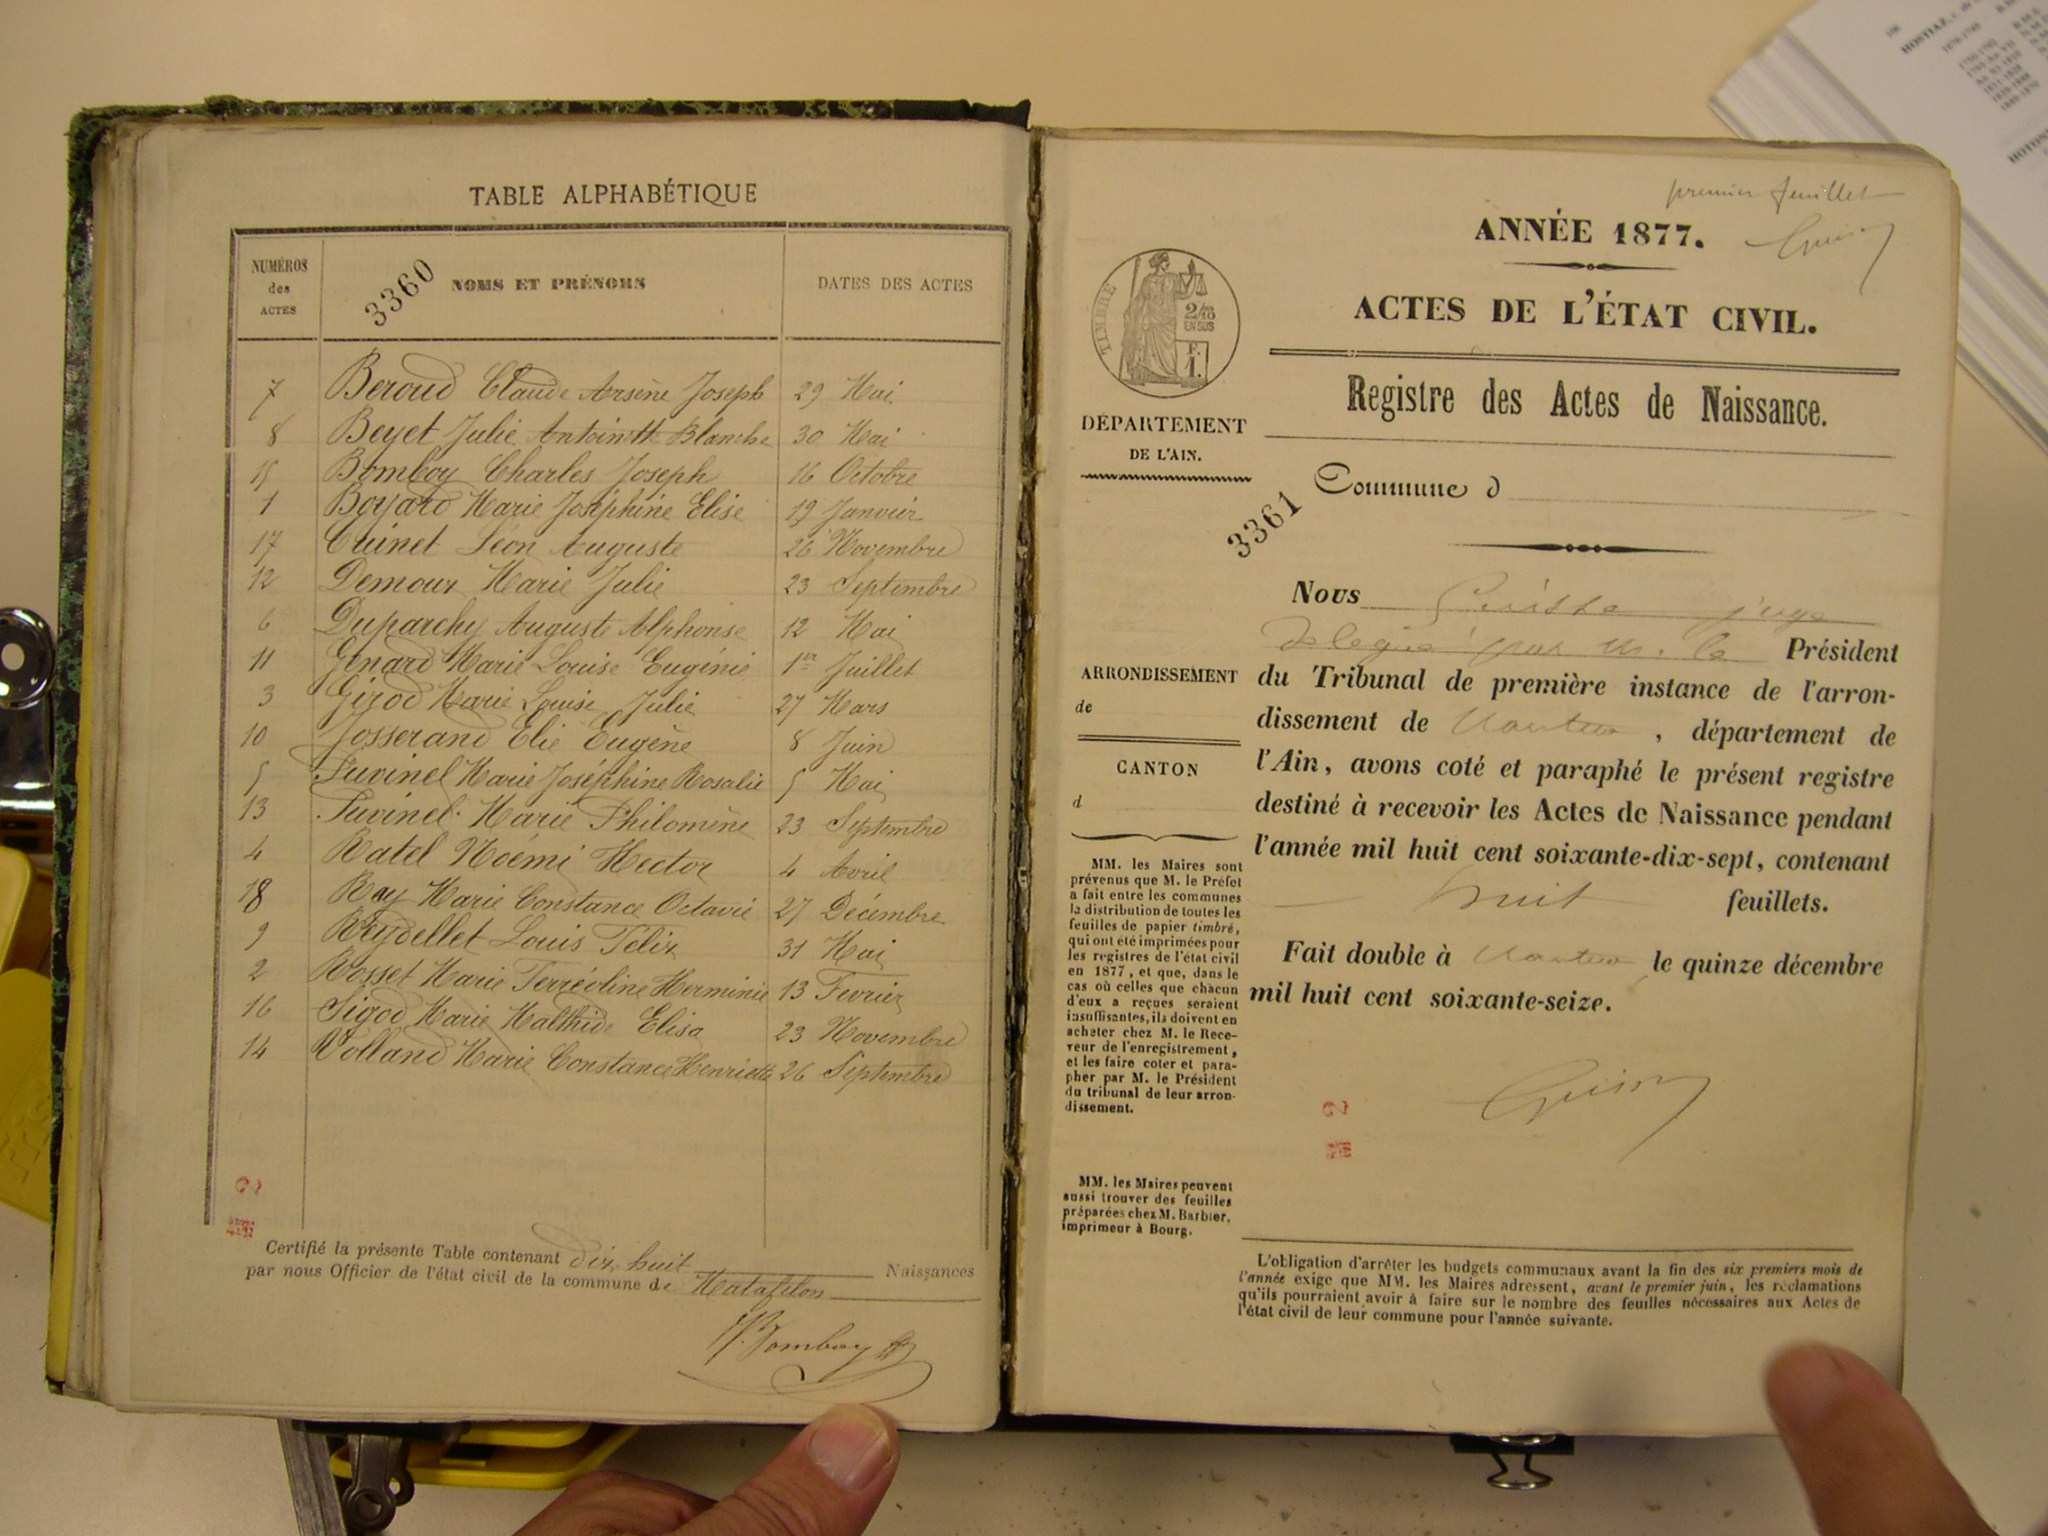 TABLE ALPHABÉTIQUE
NUMÉROS des ACTES
NOMS ET PRÉNOMS
DATES DES ACTES
3360
7 Beroud Claude Arsène Joseph 29 Mai
8 Beyet Julie Antoinette Blanche 30 Mai
15 Bomboy Charles Joseph 16 Octobre
1 Boyard Marie Joséphine Elise 19 Janvier
17 Cuinet Léon Auguste 26 Novembre
12 Demoux Marie Julie 23 Septembre
6 Duparchy Auguste Alphonse 12 Mai
11 Genard Marie Louise Eugénie 1er Juillet
3 Girod Marie Louise Julie 27 Mars
10 Josserand Elie Eugène 8 Juin
5 Juvinel Marie Joséphine Rosalie 5 Mai
13 Juvinel Marie Philomène 23 Septembre
4 Ratel Noémi Hector 4 Avril
18 Ray Marie Constance Octavie 27 Décembre
9 Reydellet Louis Félix 31 Mai
2 Rosset Marie Ferréoline Herminie 13 Fevrier
16 Sigod Marie Malthide Elisa 23 Novembre
14 Volland Marie Constance Henriette 26 Septembre
Certifié la présente Table contenant dix huit Naissances
par nous Officier de l'état civil de la commune de Matafelon
Bomboy
premier feuillet
ANNÉE 1877.
ACTES DE L'ÉTAT CIVIL.
TIMBRE
2/10
EN SUS
F.
1.
Registre des Actes de Naissance.
DÉPARTEMENT
DE L'AIN.
Commune d
3361
Nous juge
délégué par M. le Président
ARRONDISSEMENT
de
du Tribunal de première instance de l'arron-
dissement de Nantua, département de
CANTON
d
l'Ain, avons coté et paraphé le présent registre
destiné à recevoir les Actes de Naissance pendant
l'année mil huit cent soixante-dix-sept, contenant
huit feuillets.
Fait double à Nantua le quinze décembre
mil huit cent soixante-seize.
MM. les Maires sont
prévenus que M. le Préfet
a fait entre les communes
la distribution de toutes les
feuilles de papier timbré,
qui ont été imprimées pour
les registres de l'état civil
en 1877, et que, dans le
cas où celles que chacun
d'eux a reçues seraient
insuffisantes, ils doivent en
acheter chez M. le Rece-
veur de l'enregistrement,
et les faire coter et para-
pher par M. le Président
du tribunal de leur arron-
dissement.
MM. les Maires peuvent
aussi trouver des feuilles
préparées chez M. Barbier,
imprimeur à Bourg.
L'obligation d'arrêter les budgets communaux avant la fin des six premiers mois de
l'année exige que MM. les Maires adressent, avant le premier juin, les réclamations
qu'ils pourraient avoir à faire sur le nombre des feuilles nécessaires aux Actes de
l'état civil de leur commune pour l'année suivante.